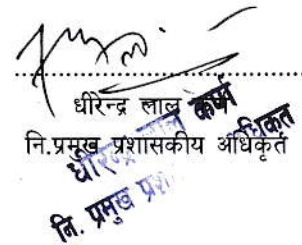 धीरेन्द्र लाल कर्ण
नि.प्रमुख प्रशासकीय अधिकृत
धीरेन्द्र लाल कर्ण
नि. प्रमुख प्रशा
अधिकृत